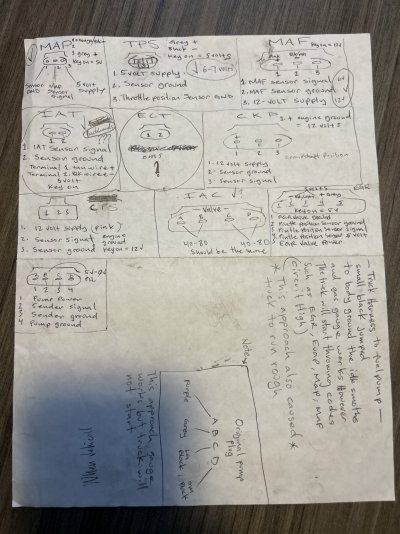 MAP
1 2 3
key on = 5V
Sensor GND
MAP Sensor Signal
5 volt Supply
TPS
Grey +
Black -
key on = 5 volts
1. 5 volt supply
6-7 volts
2. Sensor ground
3. Throttle Position Sensor GND
MAF
Key on = 12v
1 2 3
1. MAF Sensor signal
2. MAF Sensor ground
3. 12-VOLT Supply
IAT
1 2
1. IAT Sensor Signal
2. Sensor ground
Terminal 1 tan wire +
Terminal 2 Blk wire -
5 volt
Key on
ECT
1 2
OHMS
?
CKP
+ engine ground
= 12 volts
1 2 3
1 - 12 volt supply
2 - Sensor ground
3 - Sensor signal
CPS
1 2 3
1. 12 volt supply (pink)
2. Sensor signal
3. Sensor ground
engine ground
key on = 12v
IAC
Valve
A B C D
40-80
40-80
Should be the same
EGR
key on = 5v
1 EGR Valve Ground
2 Pintle Position Sensor ground
3 Pintle Position Sensor signal
4 Pintle Position Sensor 5 volt
5 EGR Valve Power
1 Pump Power
2 Sender signal
3 Sender ground
4 Pump ground
- Truck harness to fuel pump -
small black jumped
to body ground the idle smooths
and gas gauge works However
the truck will start throwing codes
such as EGR, Evap, Map, MAF
(Circuit High)
* This approach also caused *
truck to run rough
Notes
Original pump
plug
A B C D
purple
Grey
This approach, gauge
works but truck will
not start